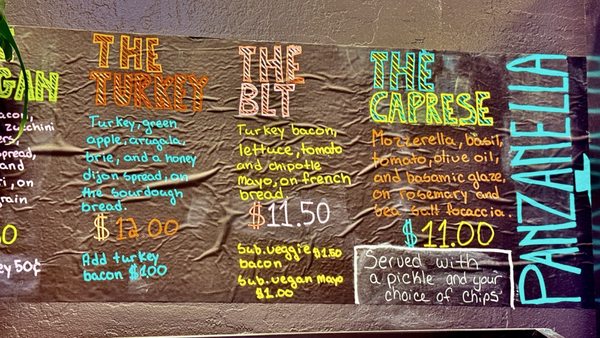 GAN
acon,
zucchini
ers,
spread,
and
ri, on
grain
50
ey 50¢
THE
TURKEY
Turkey, green
apple, arugala,
brie, and a honey
dijon spread, on
the sourdough
bread.
$12.00
Add turkey
bacon $1.00
THE
BLT
Turkey bacon,
lettuce, tomato
and chipotle
Mayo, on french
bread
$11.50
Sub. veggie $1.50
bacon
Sub. vegan mayo
$1.00
THE
CAPRESE
Mozzerella, basil,
tomato, olive oil,
and basamic glaze,
on rosemary and
sea salt focaccia.
$11.00
Served with
a pickle and your
choice of chips
PANZANELLA